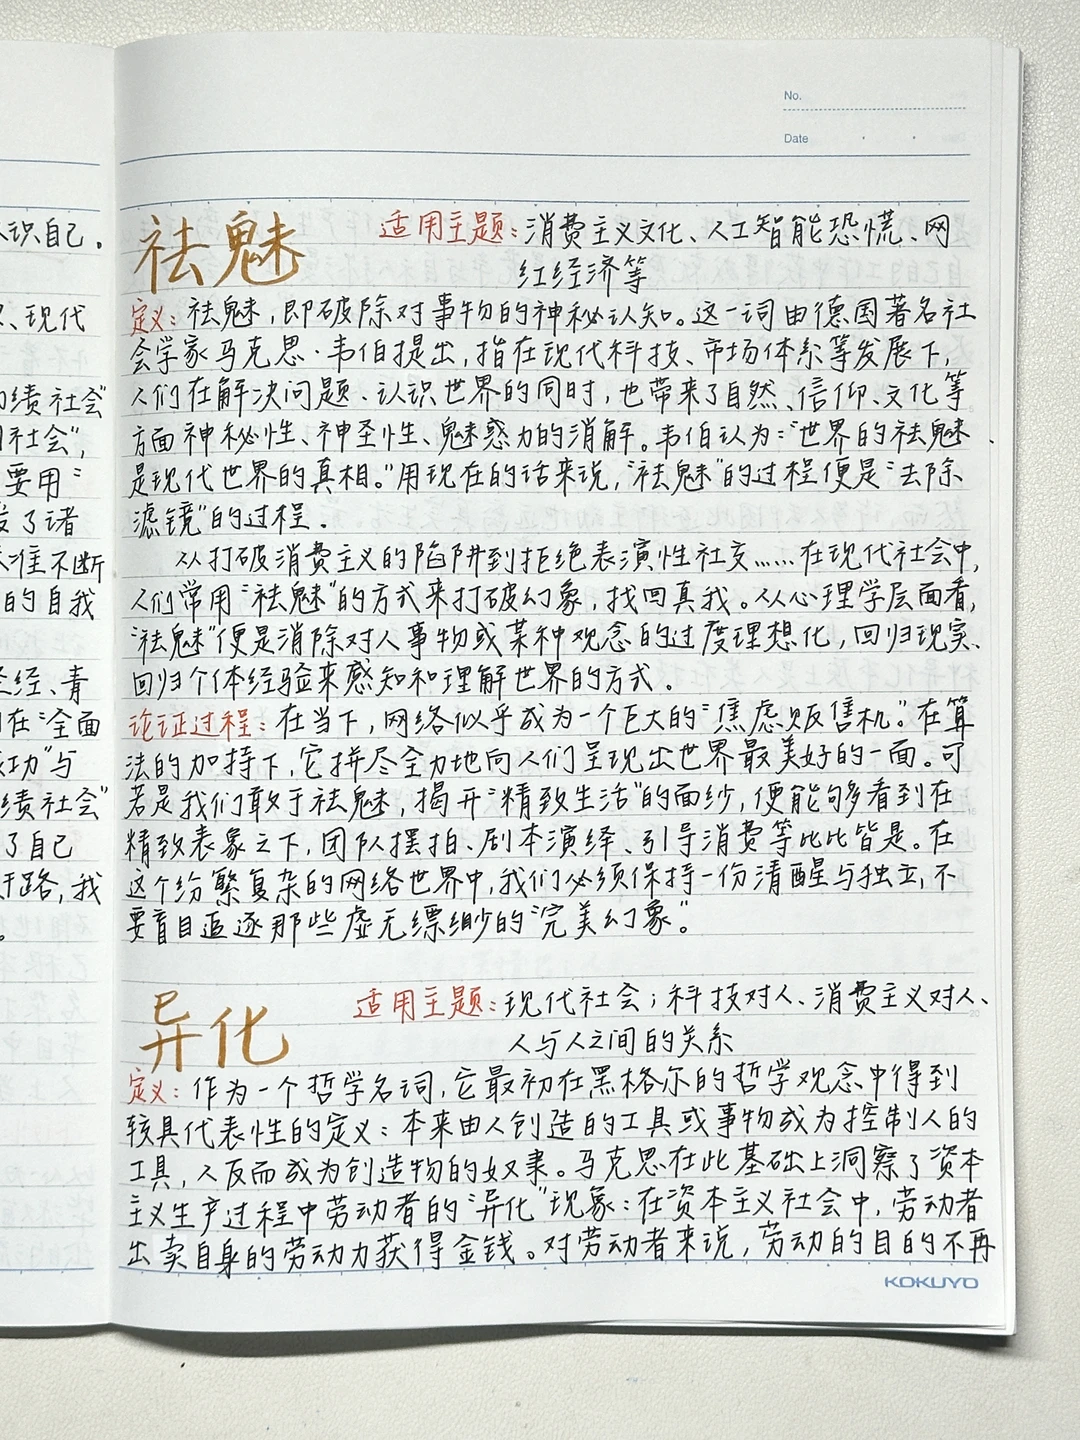 人识自己。
、现代
绩社会"
社会",
要用"
发了诸
准不断
的自我
经、青
在"全面
成功"与
绩社会"
了自己
开路,我
。
No.
Date
祛魅 适用主题:消费主义文化、人工智能恐慌、网
红经济等
定义:祛魅,即破除对事物的神秘认知。这一词由德国著名社
会学家马克思·韦伯提出,指在现代科技、市场体系等发展下,
人们在解决问题、认识世界的同时,也带来了自然、信仰、文化等
方面神秘性、神圣性、魅惑力的消解。韦伯认为:"世界的祛魅、
是现代世界的真相。"用现在的话来说,"祛魅"的过程便是"去除
滤镜"的过程.
从打破消费主义的陷阱到拒绝表演性社交……在现代社会中,
人们常用"祛魅"的方式来打破幻象,找回真我。从心理学层面看,
"祛魅"便是消除对人事物或某种观念的过度理想化,回归现实、
回归个体经验来感知和理解世界的方式。
论证过程:在当下,网络似乎成为一个巨大的"焦虑贩售机"。在算
法的加持下,它拼尽全力地向人们呈现出世界最美好的一面。可
若是我们敢于祛魅,揭开"精致生活"的面纱,便能够看到在
精致表象之下,团队摆拍、剧本演绎、引导消费等比比皆是。在
这个纷繁复杂的网络世界中,我们必须保持一份清醒与独立,不
要盲目追逐那些虚无缥缈的"完美幻象"。
异化 适用主题:现代社会;科技对人、消费主义对人、
人与人之间的关系
定义:作为一个哲学名词,它最初在黑格尔的哲学观念中得到
较具代表性的定义:本来由人创造的工具或事物成为控制人的
工具,人反而成为创造物的奴隶。马克思在此基础上洞察了资本
主义生产过程中劳动者的"异化"现象:在资本主义社会中,劳动者
出卖自身的劳动力获得金钱。对劳动者来说,劳动的目的不再
KOKUYO